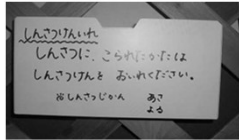 しんさつけんいれ
しんさつに、こられたかたは
しんさつけんを おいれください。
おしんさつじかん あさ
よる